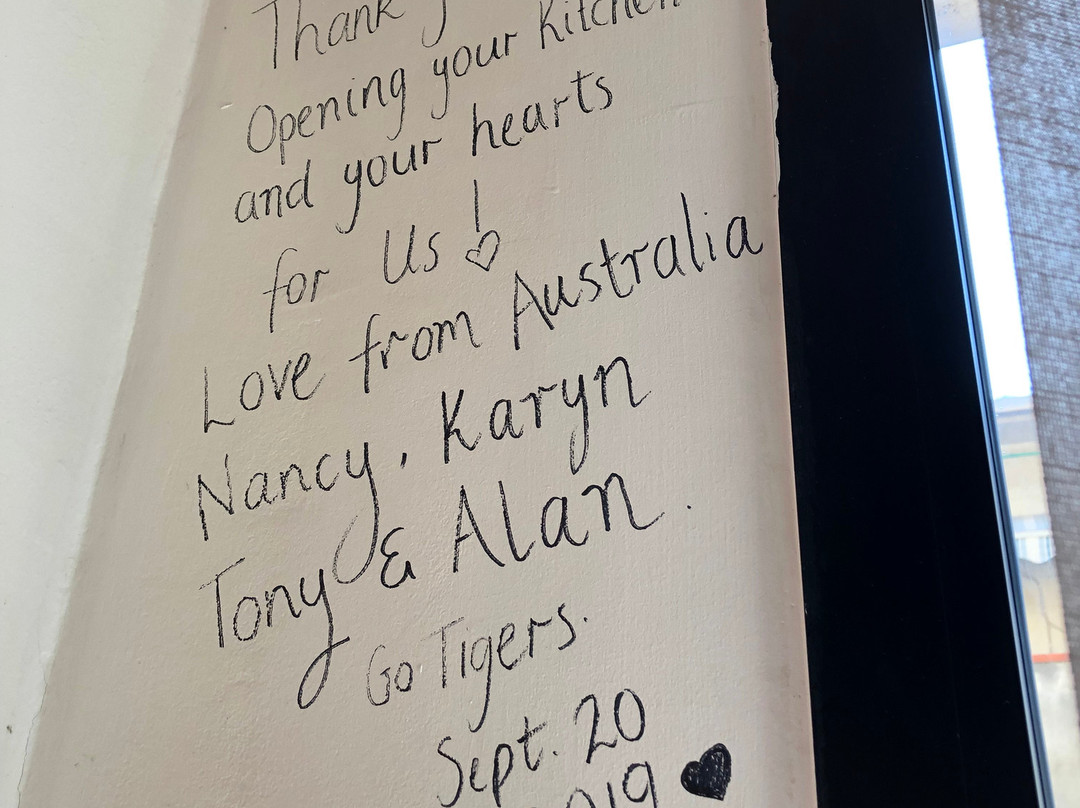 Thank
Opening your Kitchen
and your hearts
for Us!
Love from Australia
Nancy, Karyn
Tony & Alan.
Go Tigers.
Sept. 20
2019